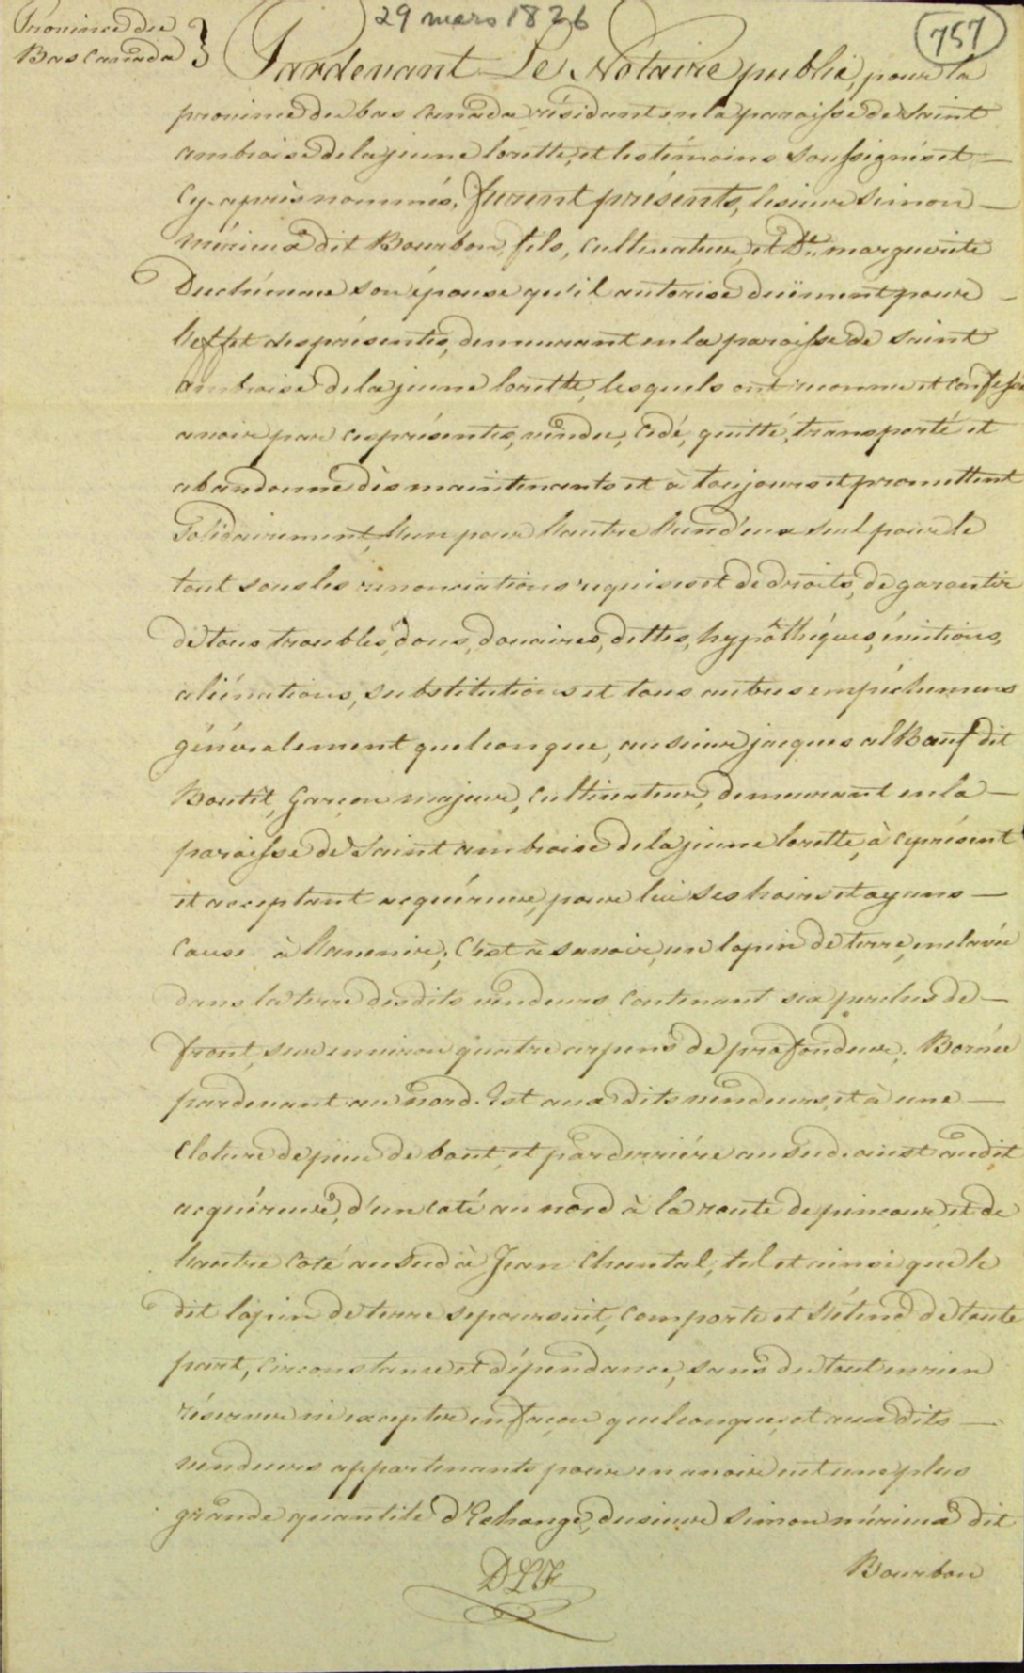 29 mars 1826
757
Province du
Bas Canada }
Pardevant Le Notaire public, pour la
province du bas Canada, résidant en la paroisse de Saint
ambroise de la jeune lorette, et les témoins soussignés et —
Cy-après nommés. furent présents, le sieur Simon —
mérieux dit Bourbon, fils, Cultivateur, et De. marguerite
Duchéneau son épouse qu'il autorise duëment pour —
l'effet des présentes, demeurant en la paroisse de Saint
ambroise de la jeune lorette, lesquels ont reconnu et confessé
avoir par ces présentes, vendu, cédé, quitté, transporté et
abandonné dès maintenants et à toujours et promettent
Solidairement, l'un pour l'autre l'un d'eux seul pour le
tout sous les renonciations requises et de droits, de garentir
de tous troubles, dons, douaires, dettes, hypôthéques, évictions,
aliénations, substitutions et tous autres empéchemens
généralement quelconque, au sieur jacques alBœuf dit
Boutit, Garçon majeur, Cultivateur, demeurant en la —
paroisse de Saint ambroise de la jeune lorette, à ce présent
et acceptant acquéreur, pour lui ses hoirs et ayans —
Cause à l'avenir; C'est à savoir, un lopin de terre, enclavée
dans la terre desdits vendeurs Contenant six perches de —
front, sur environ quatre arpens de profondeur; Bornée
pardevant au nord-Est aux dits vendeurs, et à une —
Cloture de pieu de bout, et par derriére au Sud-ouest audit
acquéreur, d'un coté au nord à la route de pincour, et de
l'autre Coté au Sud à Jean Chantal; tel et ainsi que le
dit lopin de terre se poursuit, Comporte et s'étend de toute
part, Circonstance et dépendance, sans du tout en rien
réserver ni excepter en façon quelconque, et aux dits —
vendeurs appartenants pour en avoir eut une plus
grande quantité d'Echange, du sieur Simon mérieux dit
Bourbon
DLF